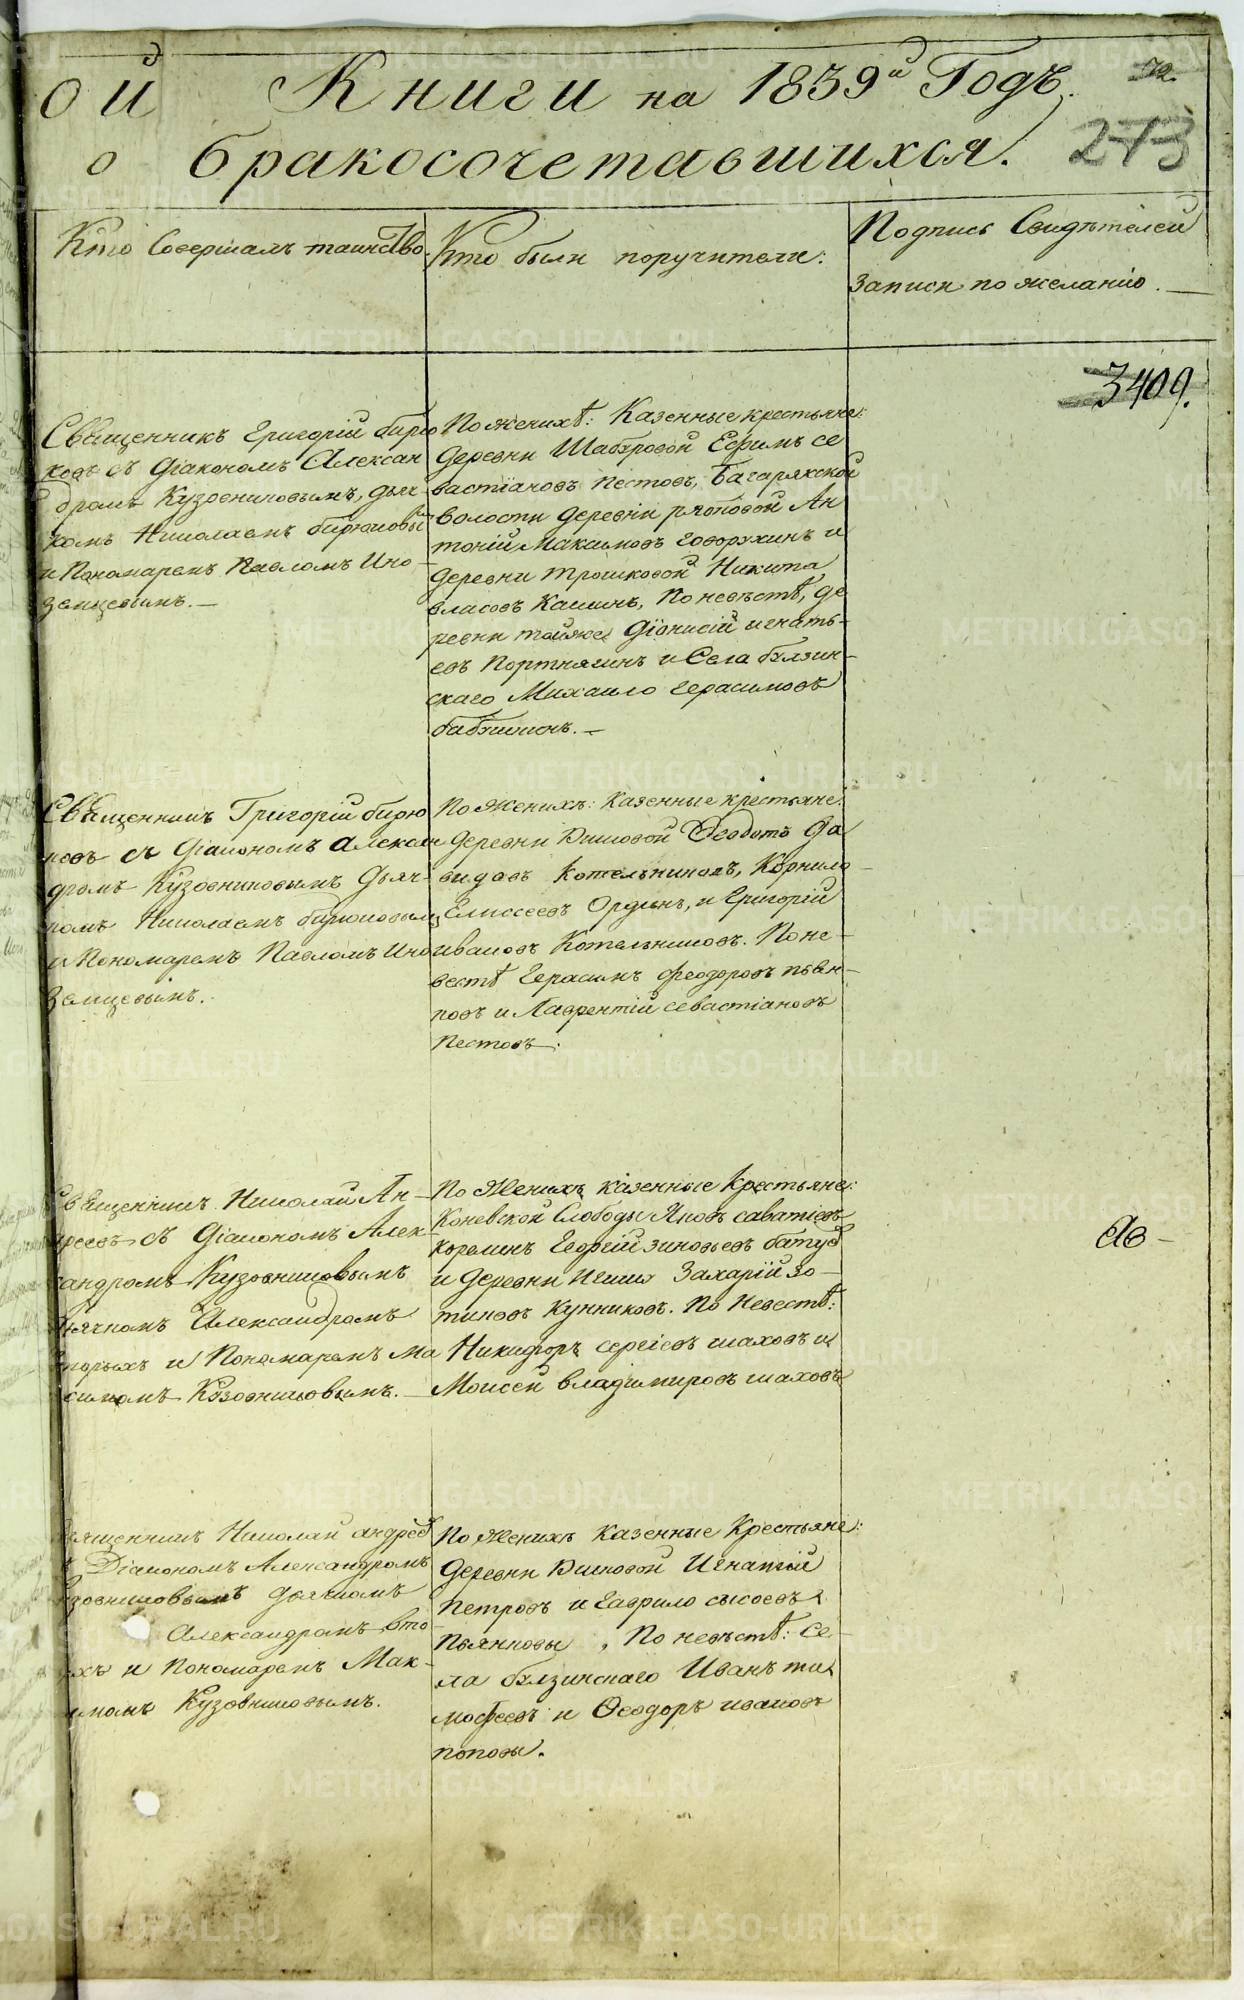 ой Книги на 1839й Годъ.
72.
273
о бракосочетавшихся.
Кто Совершалъ таинство.
Кто были поручители:
Подпись Свидѣтелей
записи по желанію.
3409.
Священникъ Григорій бирю
ковъ съ діакономъ Алексан
дромъ Кузовниковымъ, дьяч-
комъ Николаемъ бирюковы
и Пономаремъ Павломъ Ино
земцевымъ.
По женихѣ: Казенные крестьяне:
деревни Шабуровой Ефимъ се
вастіановъ пестовъ, Багарякской
волости деревни рятовой Ан
тоній Максимовъ говорухинъ и
деревни трошковой Никита
власовъ Кашинъ, По невѣстѣ, де
ревни тойже Діонисій игнать-
евъ портнягинъ и Села булзин-
скаго Михаило герасимовъ
бабушкинъ.
Священникъ Григорій бирю
ковъ съ діакономъ Алексан
дромъ Кузовниковымъ дьяч-
комъ Николаемъ бирюковым
и Пономаремъ Павломъ Ино
земцевымъ.
По Женихѣ: Казенные крестьяне:
деревни Ѳеодотъ да
видовъ Котельниковъ, Корнило
Елисеевъ и Григорій
ивановъ Котельниковъ. По не-
вестѣ Герасимъ феодоровъ пьян-
ковъ и Лаврентій севастіановъ
пестовъ.
Священникъ Николай Ан-
дреевъ съ діакономъ Алек-
сандромъ Кузовниковымъ
дьячкомъ Александромъ
вторыхъ и Пономаремъ Ма
симомъ Кузовниковымъ.
По Женихѣ казенные Крестьяне:
Коневской Слободы Яковъ саватіевъ
корелинъ Георгій зиновьевъ батуе
и деревни Захарій зо-
тиковъ Кунниковъ. По Невестѣ:
Никифоръ сергіевъ шаховъ и
Моисей владимировъ шаховъ
священникъ Николай андрее
Діакономъ Александромъ
Кузовниковымъ дьячкомъ
Александромъ вто-
рыхъ и Пономаремъ Мак-
симомъ Кузовниковымъ.
По Женихѣ Казенные Крестьяне:
деревни Игнатій
Петровъ и Гаврило сысоевъ
Пьянковы, По невѣстѣ: се-
ла булзинскаго Иванъ ти
мофеевъ и Ѳеодоръ ивановъ
поповы.